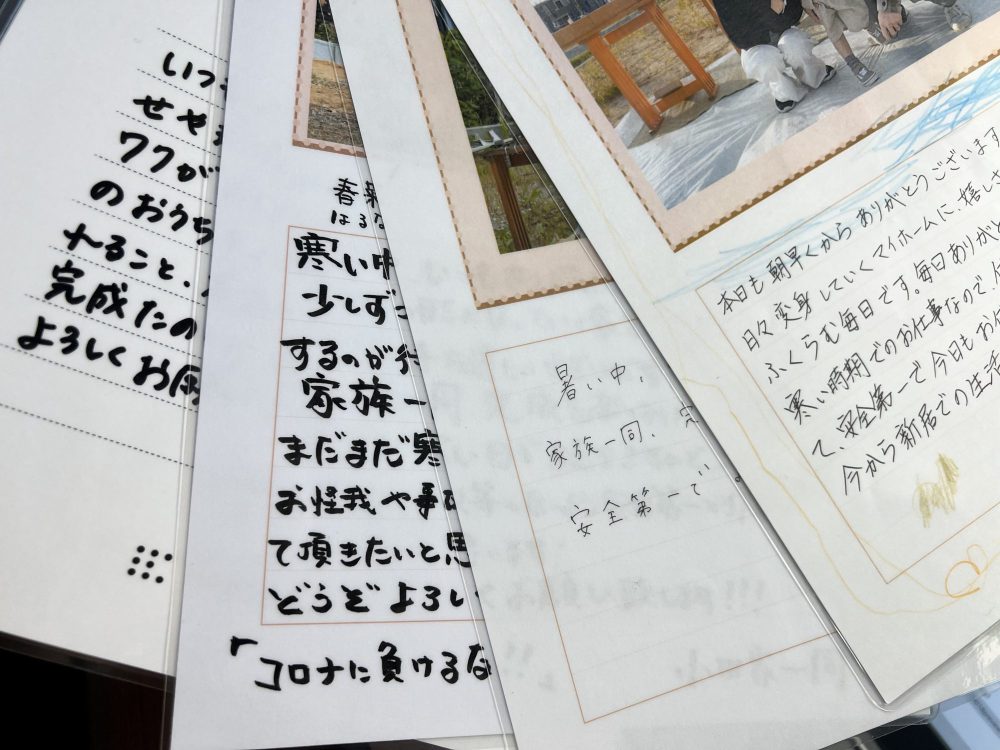 いつ
せや
ワクが
のおうち
れること、
完成たの
よろしくお
春
はるな
寒い中
少しずつ
するのが
家族一
まだまだ寒
お怪我や事
て頂きたいと思
どうぞよろし
「コロナに負けるな
暑い中、
家族一同、
安全第一で。
本日も朝早くからありがとうございます
日々変身していくマイホームに、嬉しさ
ふくらむ毎日です。毎日ありがと
寒い時期でのお仕事なので、
て、安全第一で今日もお
今から新居での生活